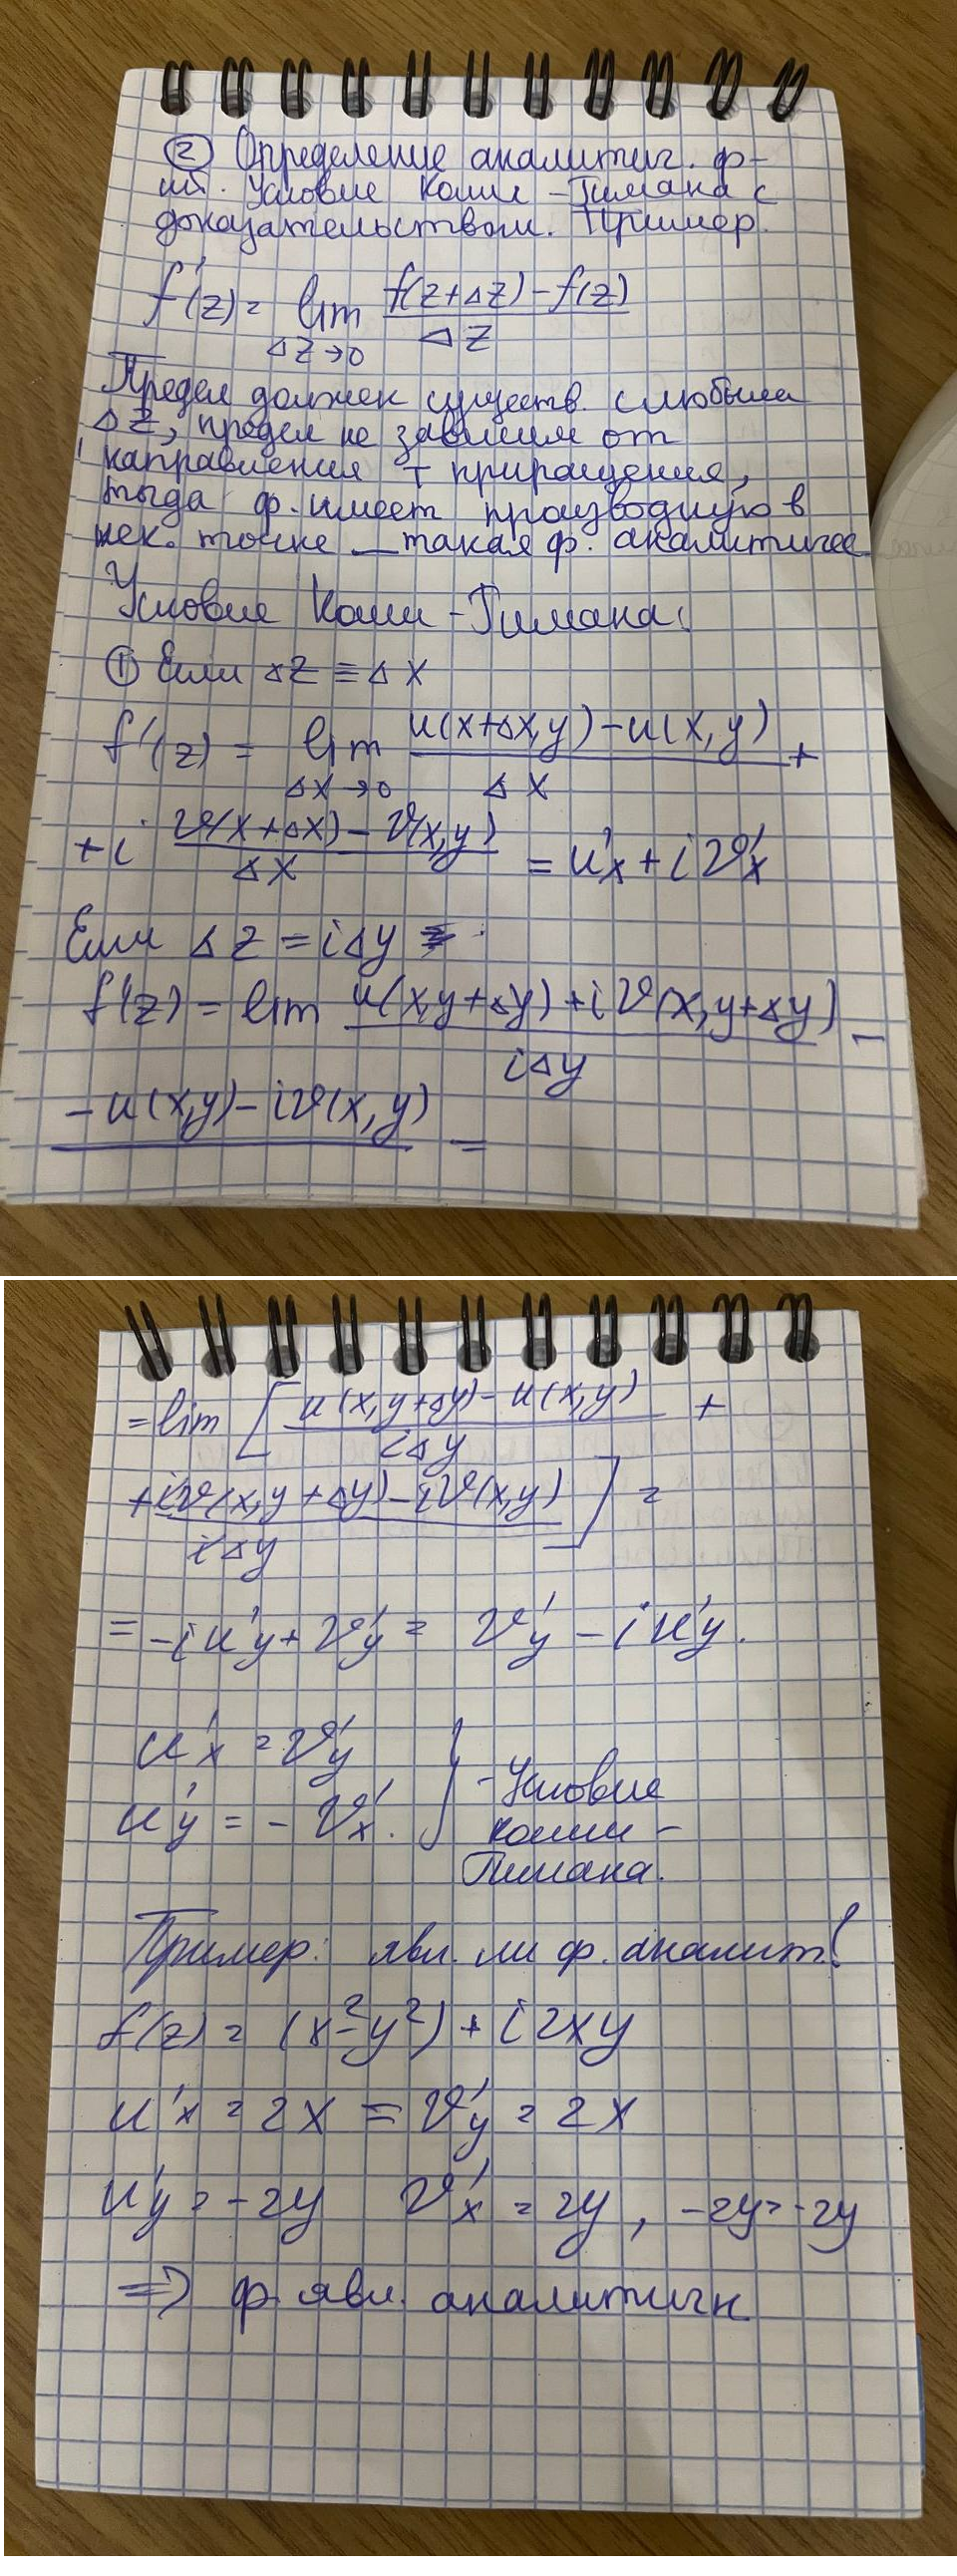 ② Определение аналитич. ф-
ии. Условие Коши-Римана с
доказательством. Пример.
f'(z) = lim f(z+Δz)-f(z)
Δz→0 Δz
Предел должен существ. с любыми
Δz, предел не зависим от
направления + приращения,
тогда ф. имеет производную в
нек. точке — такая ф. аналитичес
Условие Коши-Римана:
① Если Δz = Δx
f'(z) = lim u(x+Δx,y)-u(x,y) +
Δx→0 Δx
+i v(x+Δx)-v(x,y) = u'x + i v'x
Δx
Если Δz = iΔy
f'(z) = lim u(x,y+Δy)+iv(x,y+Δy) -
iΔy
-u(x,y)-iv(x,y) =
= lim [ u(x,y+Δy)-u(x,y) +
iΔy
+iv(x,y+Δy)-iv(x,y) ] =
iΔy
= -i u'y + v'y = v'y - i u'y.
u'x = v'y
u'y = - v'x. } - Условие
Коши -
Римана.
Пример: явл. ли ф. аналит?
f(z) = (x²-y²) + i2xy
u'x = 2x = v'y = 2x
u'y = -2y v'x = 2y, -2y=-2y
⇒ ф. явл. аналитичн